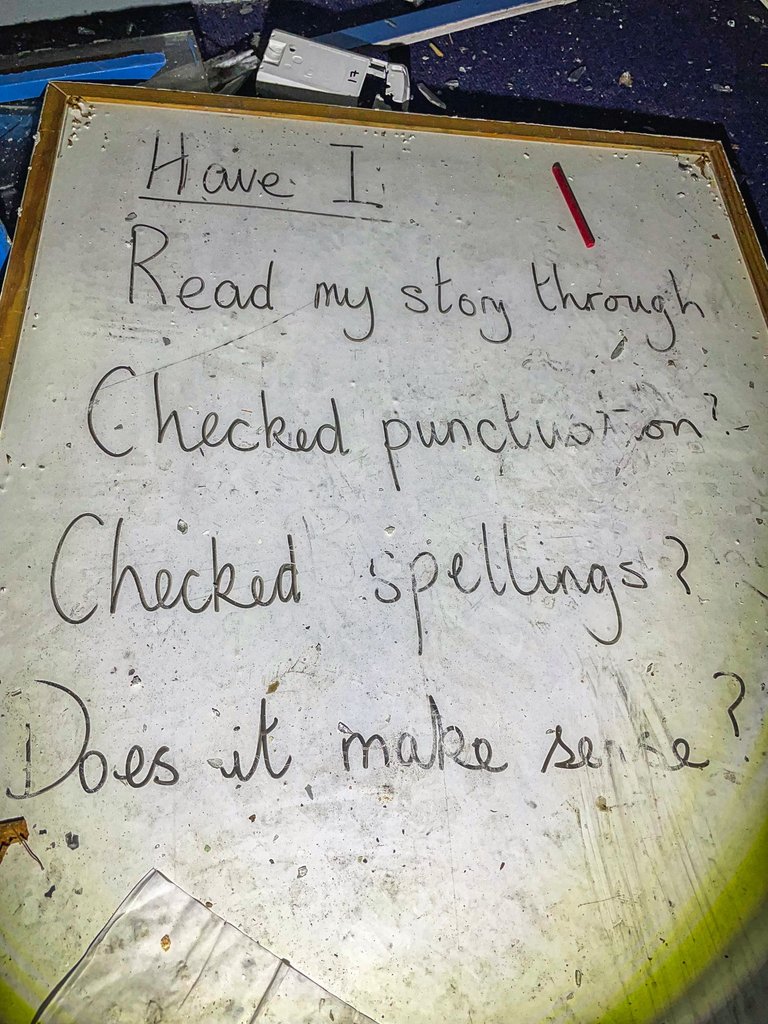 Have I
Read my story through
Checked punctuation?
Checked spellings?
Does it make sense?